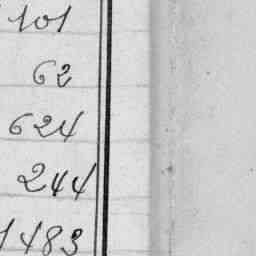 101
62
624
244
1483